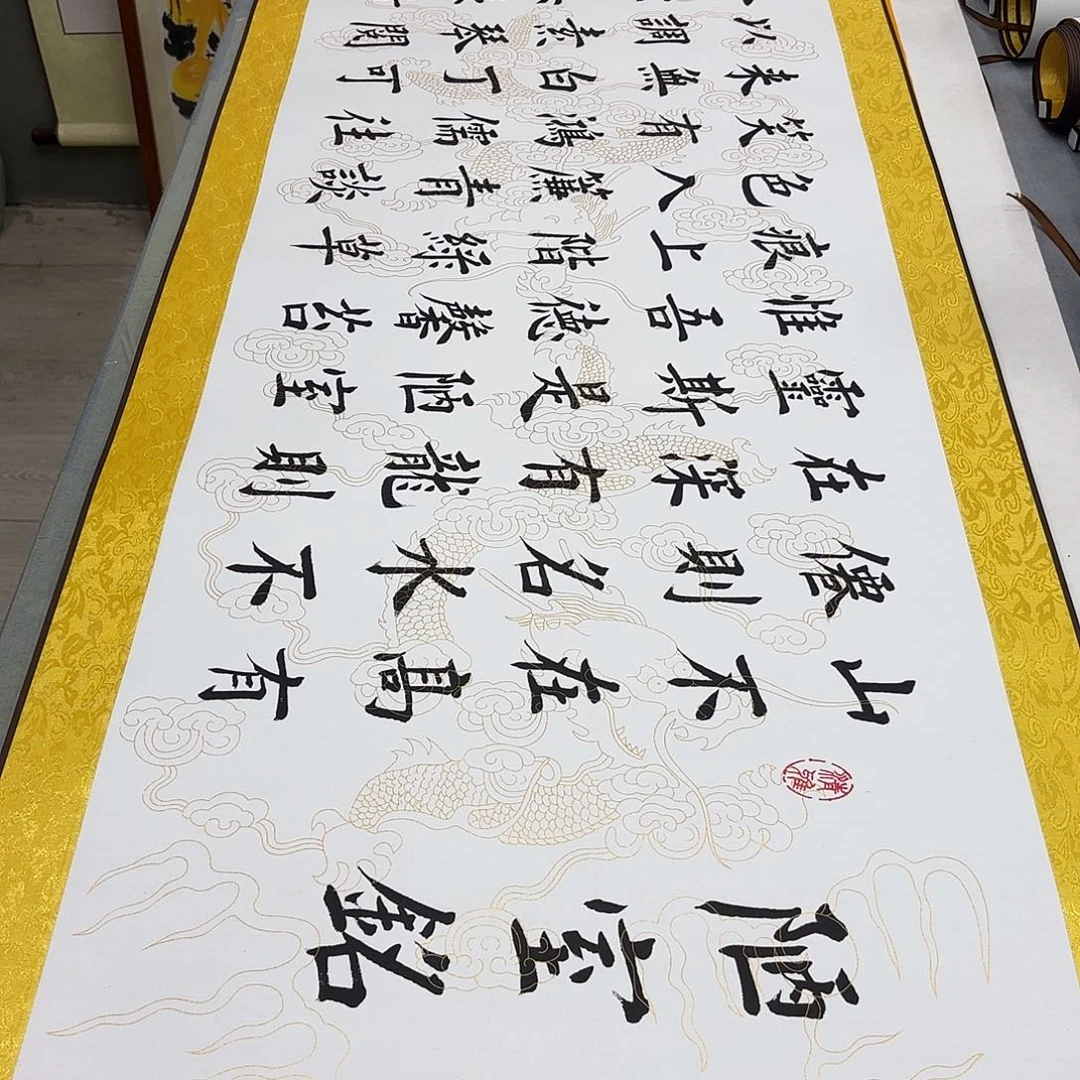 陋室銘
清雅
山不在高有
僊則名水不
在深有龍則
靈斯是陋室
惟吾德馨苔
痕上階綠草
色入簾青談
笑有鴻儒往
来無白丁可
以調素琴閱